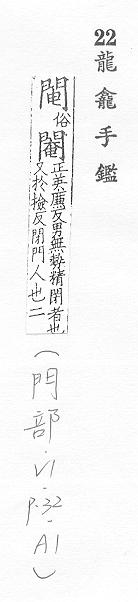 22 龍龕手鑑
俗閹正英廉反男無勢精閉者也又於撿反閉門人也二
(門部.VI-p.32-A1)